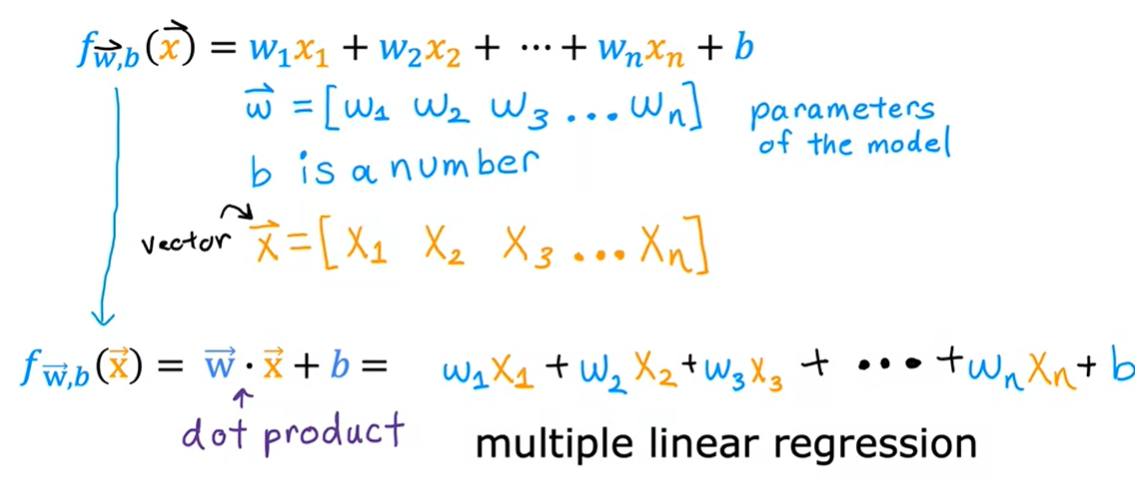 f w⃗,b (x⃗) = w₁x₁ + w₂x₂ + ⋯ + wₙxₙ + b
w⃗ = [w₁ w₂ w₃ ... wₙ] parameters of the model
b is a number
vector x⃗ = [x₁ x₂ x₃ ... xₙ]
f w⃗,b (x⃗) = w⃗ · x⃗ + b = w₁x₁ + w₂x₂ + w₃x₃ + ⋯ + wₙxₙ + b
dot product
multiple linear regression